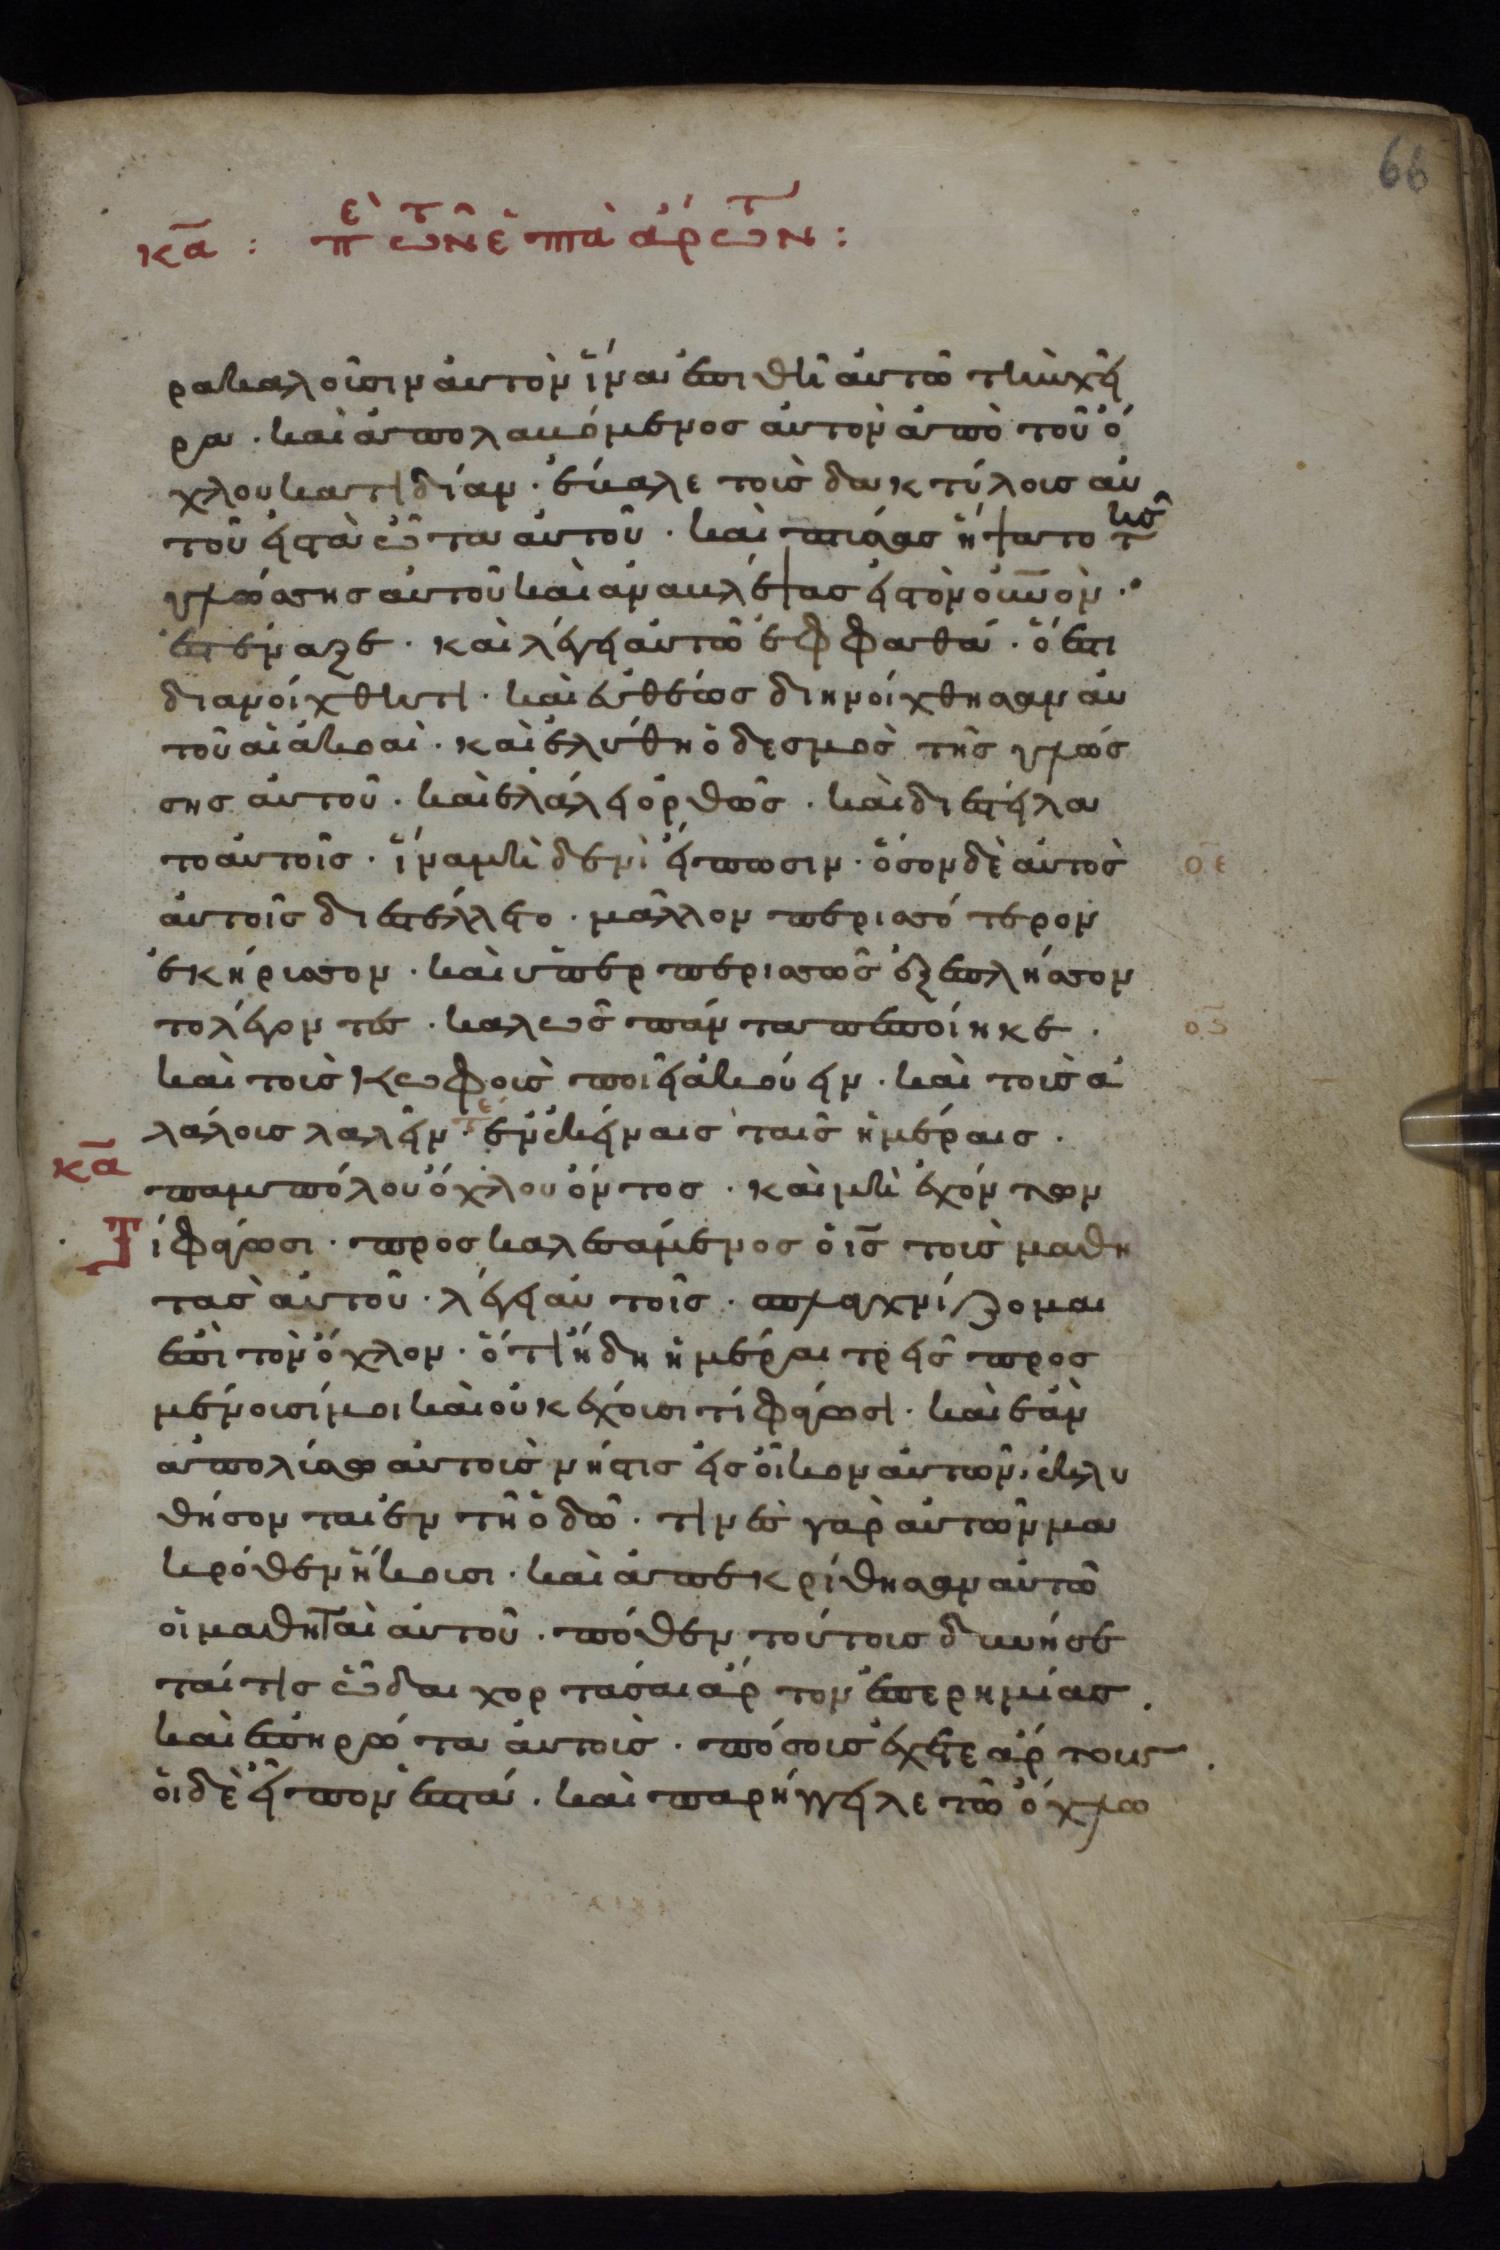 66
κα : περὶ τῶν ἑπτὰ ἄρτων :
ρακαλοῦσιν αὐτὸν ἵνα ἐπιθῆ αὐτῶ τὴν χεῖ
ρα · καὶ ἀπολαβόμενος αὐτὸν ἀπὸ τοῦ ὄ
χλου κατιδίαν · ἔβαλε τοὺς δακτύλους αὐ
τοῦ εἰς τὰ ὦτα αὐτοῦ · καὶ πτύσας ἥψατο τῆς
γλώσσης αὐτοῦ καὶ ἀναβλέψας εἰς τὸν οὐνὸν ·
ἐστέναξε · καὶ λέγει αὐτῶ ἐφφαθά · ὅ ἐστι
διανοίχθητι · καὶ εὐθέως διηνοίχθησαν αὐ
τοῦ αἱ ἀκοαὶ · καὶ ἐλύθη ὁ δεσμὸς τῆς γλώσ
σης αὐτοῦ · καὶ ἐλάλει ὀρθῶς · καὶ διεστείλα
το αὐτοῖς · ἵνα μὴ δενὶ εἴπωσιν · ὅσον δὲ αὐτὸς
οε
αὐτοῖς διεστέλλετο · μᾶλλον περισσότερον
ἐκήρυσσον · καὶ ὑπὲρ περισσῶς ἐξεπλήσσον
το λέγοντες · καλῶς πάντα πεποίηκε ·
ος
καὶ τοὺς κωφοὺς ποιεῖ ἀκούειν · καὶ τοὺς ἀ
λάλους λαλεῖν · τε ἐν ἐκείναις ταῖς ἡμέραις ·
κα
παμπόλου ὄχλου ὄντος · καὶ μὴ ἐχόντων
Τί φάγωσι · προσκαλεσάμενος ὁ ις τοὺς μαθη
τὰς αὐτοῦ · λέγει αὐτοῖς · σπλαγχνίζομαι
ἐπὶ τὸν ὄχλον · ὅτι ἤδη ἡμέραι τρεῖς προσ
μένουσί μοι καὶ οὐκ ἔχουσι τί φάγωσι · καὶ ἐὰν
ἀπολύσω αὐτοὺς νήστις εἰς οἶκον αὐτῶν · ἐκλυ
θήσονται ἐν τῆ ὁδῶ · τινὲς γὰρ αὐτῶν μα
κρόθεν ἥκουσι · καὶ ἀπεκρίθησαν αὐτῶ
οἱ μαθηταὶ αὐτοῦ · πόθεν τούτους δυνήσε
ταί τις ὧδαι χορτάσαι ἄρτον ἐπερημίας ·
καὶ ἐπηρώτα αὐτοὺς · πόσους ἔχετε ἄρτους ·
οἱ δὲ εἶπον ἑπτά · καὶ παρήγγειλε τῶ ὄχλω